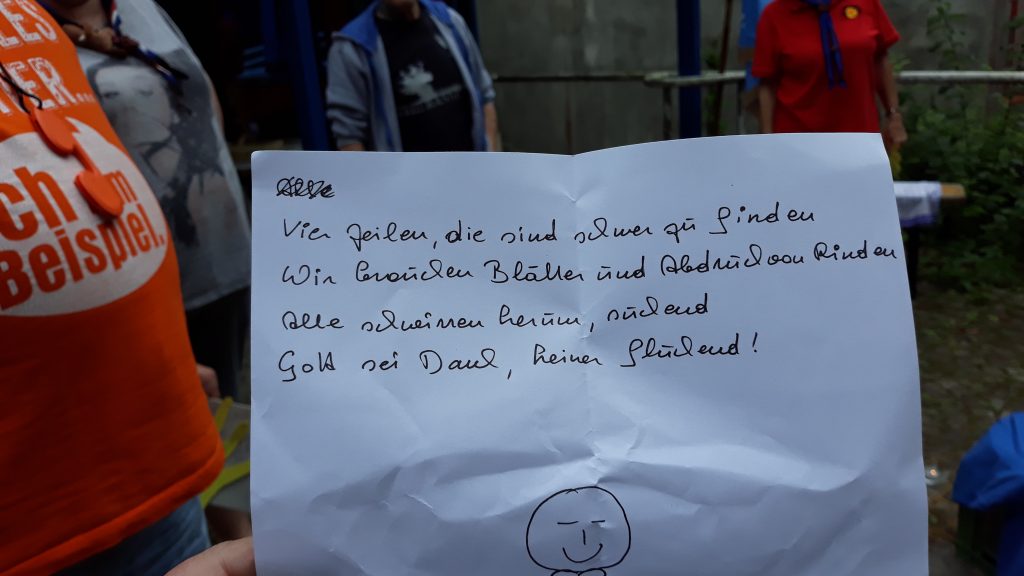 Vier Zeilen, die sind schwer zu finden
Wir brauchen Blätter und Abdruck von Rinden
Alle schwirren herum, suchend
Gott sei Dank, keiner fluchend!
ch
m
Beispiel.